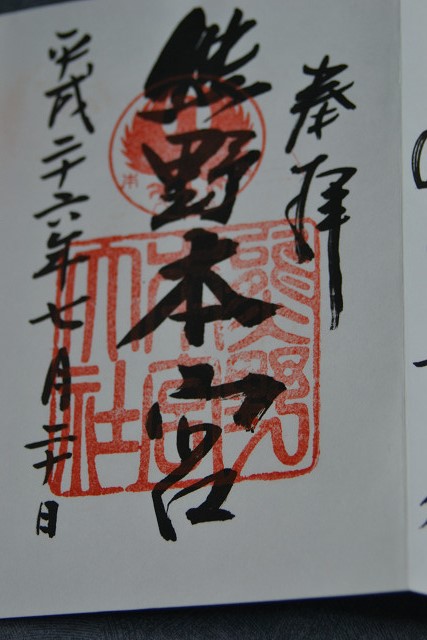 奉拝
熊野本宮
平成二十六年七月二十日
熊野本宮大社